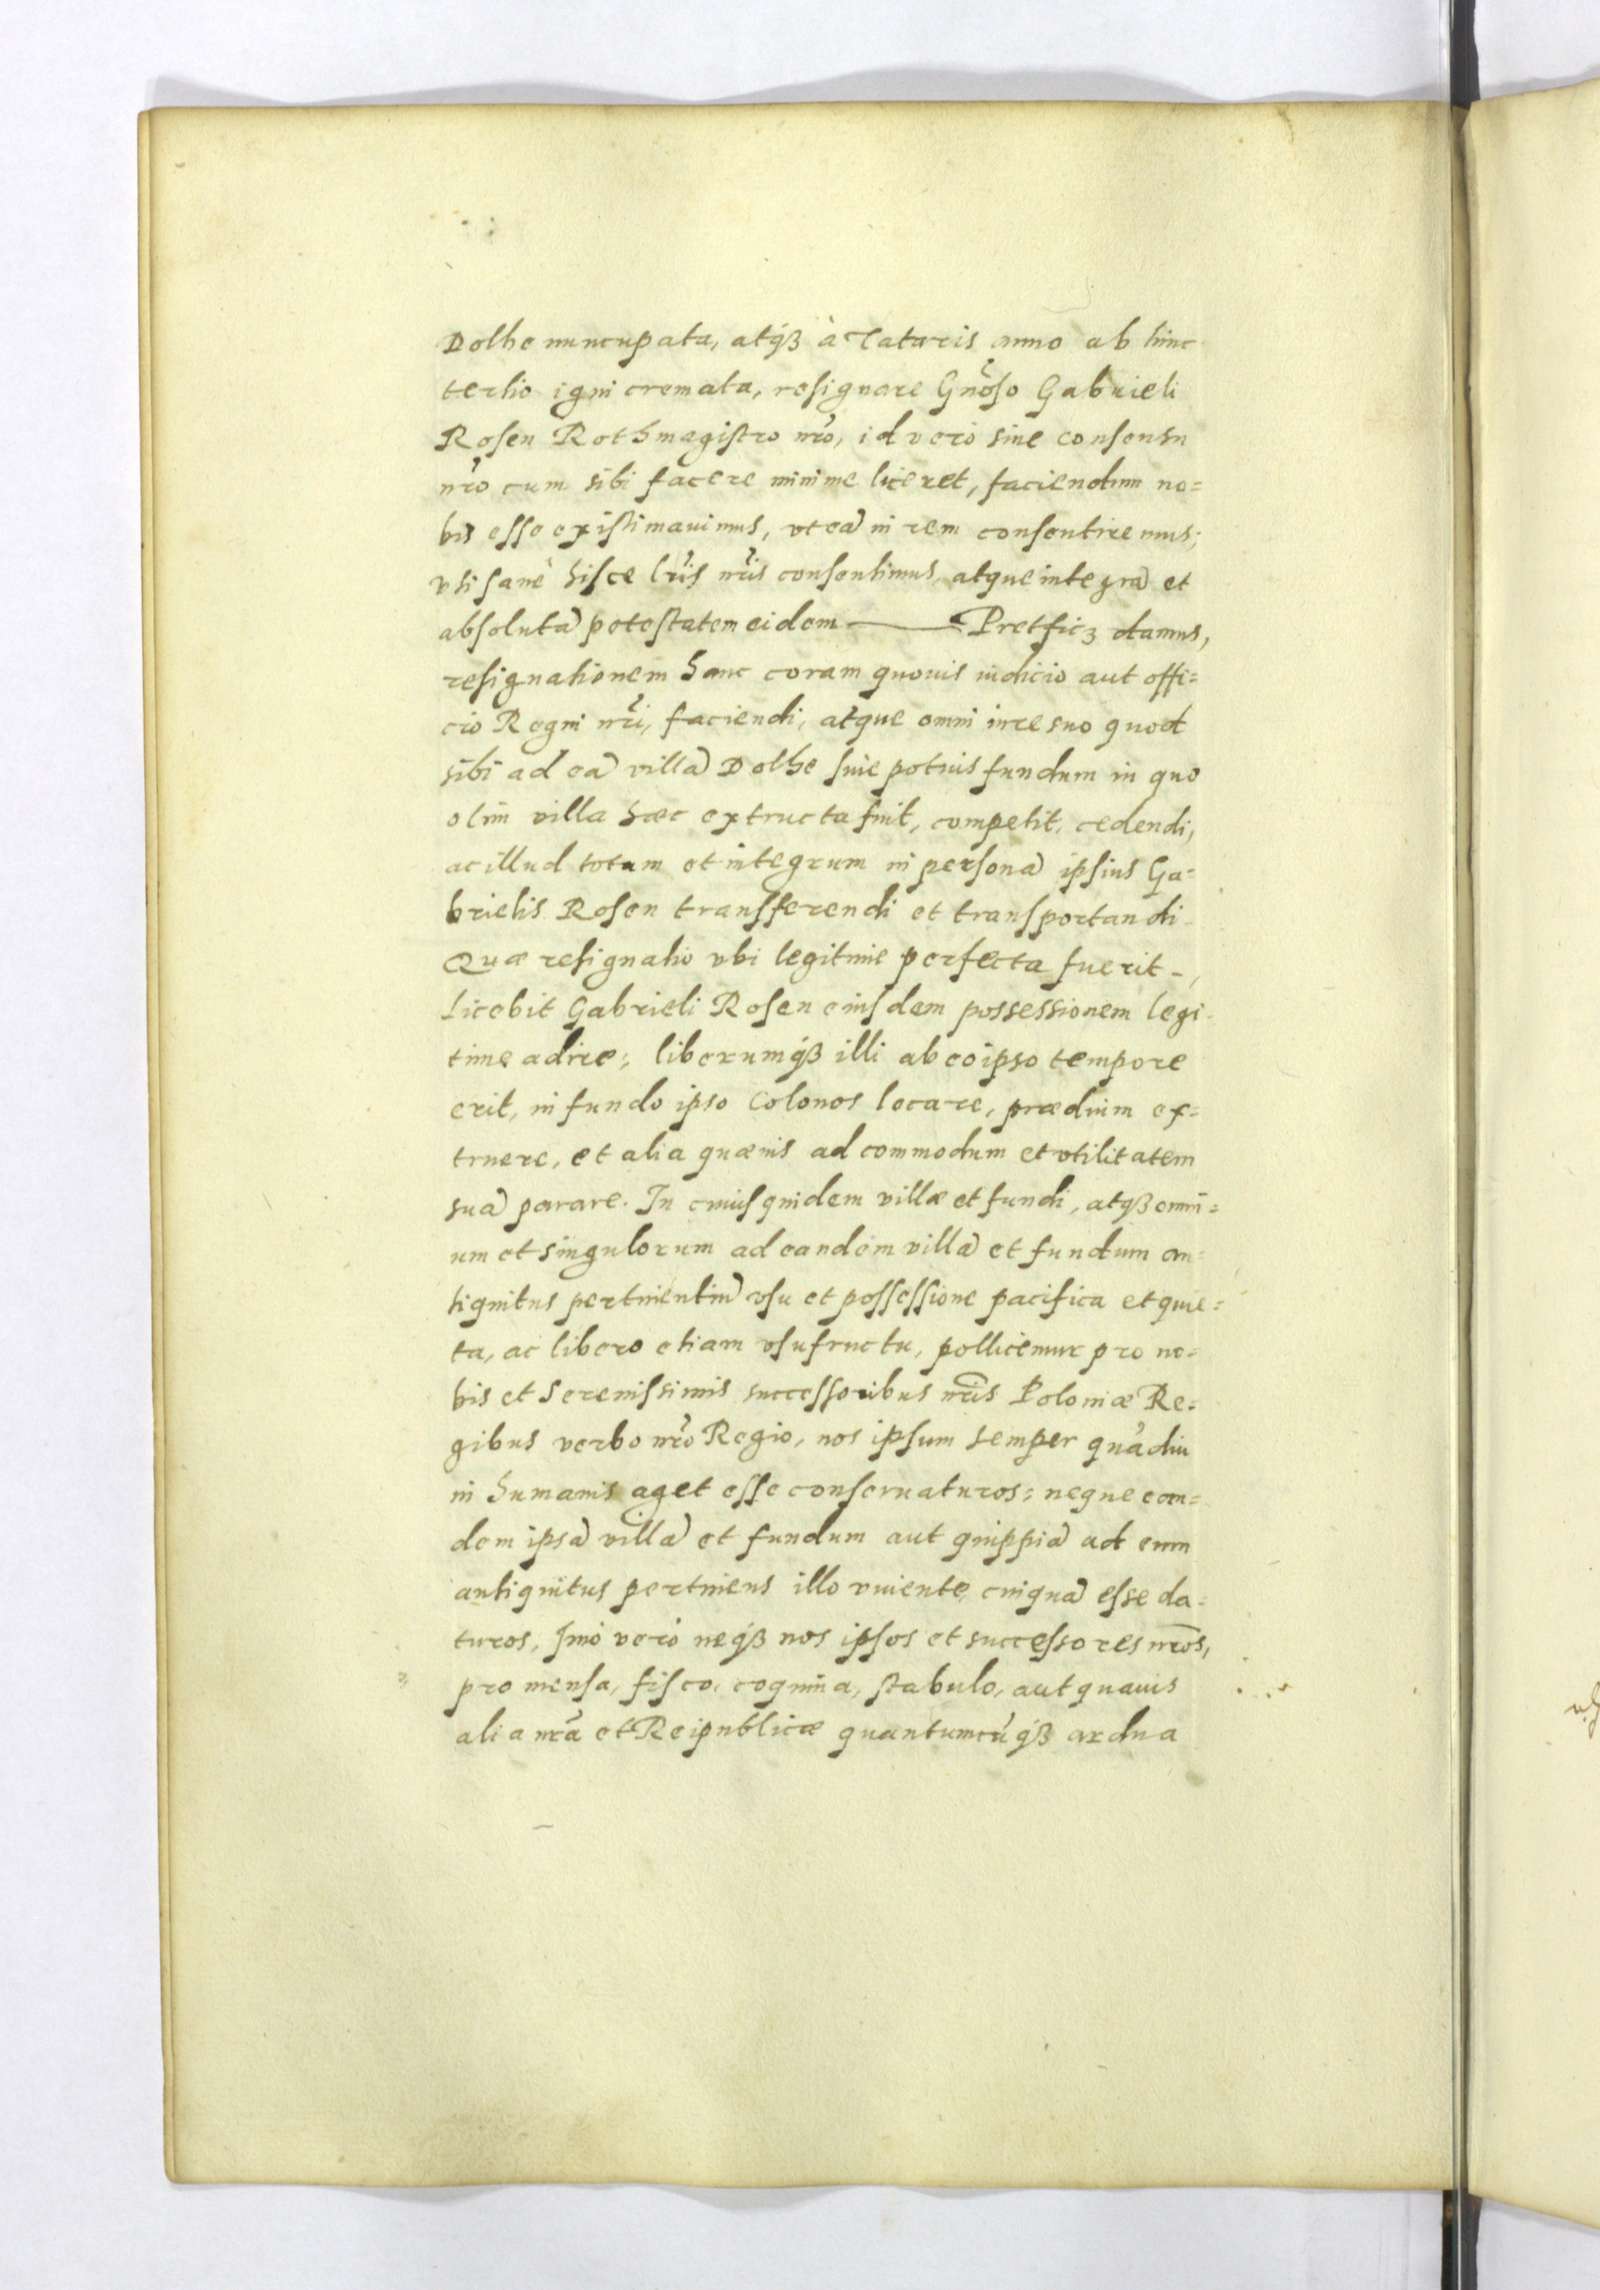 Dolhe nuncupata, atq́ꝫ à Tataris anno ab hinc
tertio igni cremata, resignare Gn̄oso Gabrieli
Rosen Rothmagistro nr̄o, id verò sine consensu
nr̄o cum sibi facere minime liceret, faciendum no=
bis esse existimauimus, vt eā in rem consentiremus;
vti sanè hisce lr̄is nr̄is consentimus, atque integrā et
absolutā potestatem eidem ——— Pretficz damus,
resignationem hanc coram quouis iudicio aut offi=
cio Regni nr̄i, faciendi, atque omni iure suo quod
sibi ad eā villā Dolhe siue potius fundum in quo
olim villa haec extructa fuit, competit, cedendi,
ac illud totum et integrum in personā ipsius Ga=
brielis Rosen transferendi et transportandi
Quæ resignatio vbi legitime perfecta fuerit,
Licebit Gabrieli Rosen eiusdem possessionem legi
time adire; liberumq́ꝫ illi ab eo ipso tempore
erit, in fundo ipso Colonos locare, prædium ex=
truere, et alia quæuis ad commodum et vtilitatem
suā parare. In cuius quidem villæ et fundi, atqꝫ omni=
um et singulorum ad eandem villā et fundum an=
tiquitus pertinentiū vsu et possessione pacifica et quie=
ta, ac libero etiam vsufructu, pollicemur pro no=
bis et Serenissimis successoribus nr̄is Poloniæ Re=
gibus verbo nr̄o Regio, nos ipsum semper quādiu
in humanis aget esse conseruaturos; neque ean=
dem ipsā villā et fundum aut quippiā ad eum
antiquitus pertinens illo viuente, cuiquā esse da=
turos, Imò verò neq́ꝫ nos ipsos et successores nr̄os,
pro mensa, fisco, coquina, stabulo, aut quauis
alia nr̄a et Reipublicæ quantumcūq́ꝫ ardua